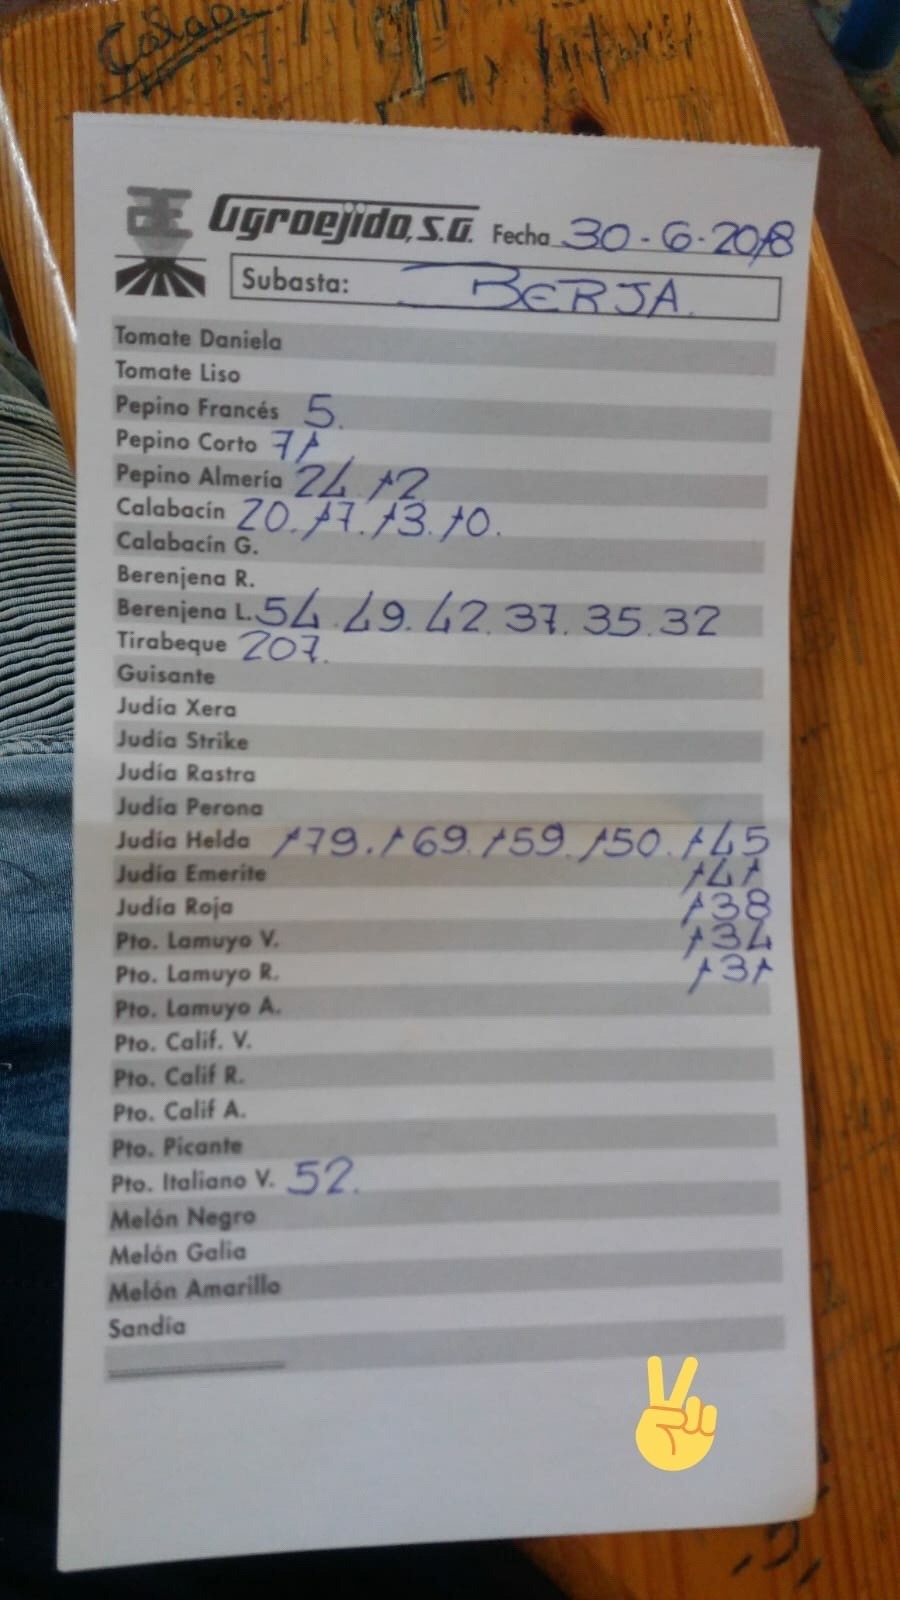 Agroejido, S.A. Fecha 30-6-2018
Subasta: BERJA.
Tomate Daniela
Tomate Liso
Pepino Francés 5.
Pepino Corto 71
Pepino Almería 24. 12
Calabacín 20. 17. 13. 10.
Calabacín G.
Berenjena R.
Berenjena L. 54. 49. 42. 37. 35. 32
Tirabeque 207.
Guisante
Judía Xera
Judía Strike
Judía Rastra
Judía Perona
Judía Helda 179. 169. 159. 150. 145
Judía Emerite 141
Judía Roja 138
Pto. Lamuyo V. 134
Pto. Lamuyo R. 131
Pto. Lamuyo A.
Pto. Calif. V.
Pto. Calif R.
Pto. Calif A.
Pto. Picante
Pto. Italiano V. 52.
Melón Negro
Melón Galia
Melón Amarillo
Sandía